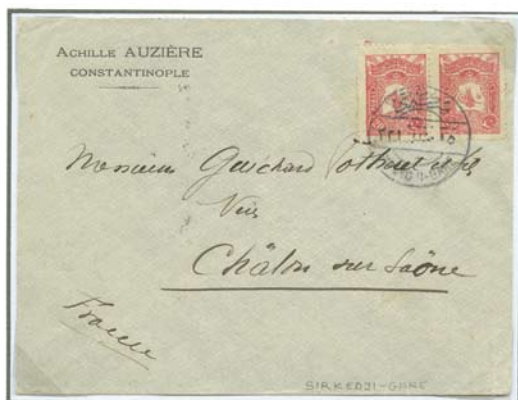 ACHILLE AUZIÈRE
CONSTANTINOPLE
Messieurs Guichard Pothuet et fils
Châlon sur Saône
France
SIRKEDJI-GARE